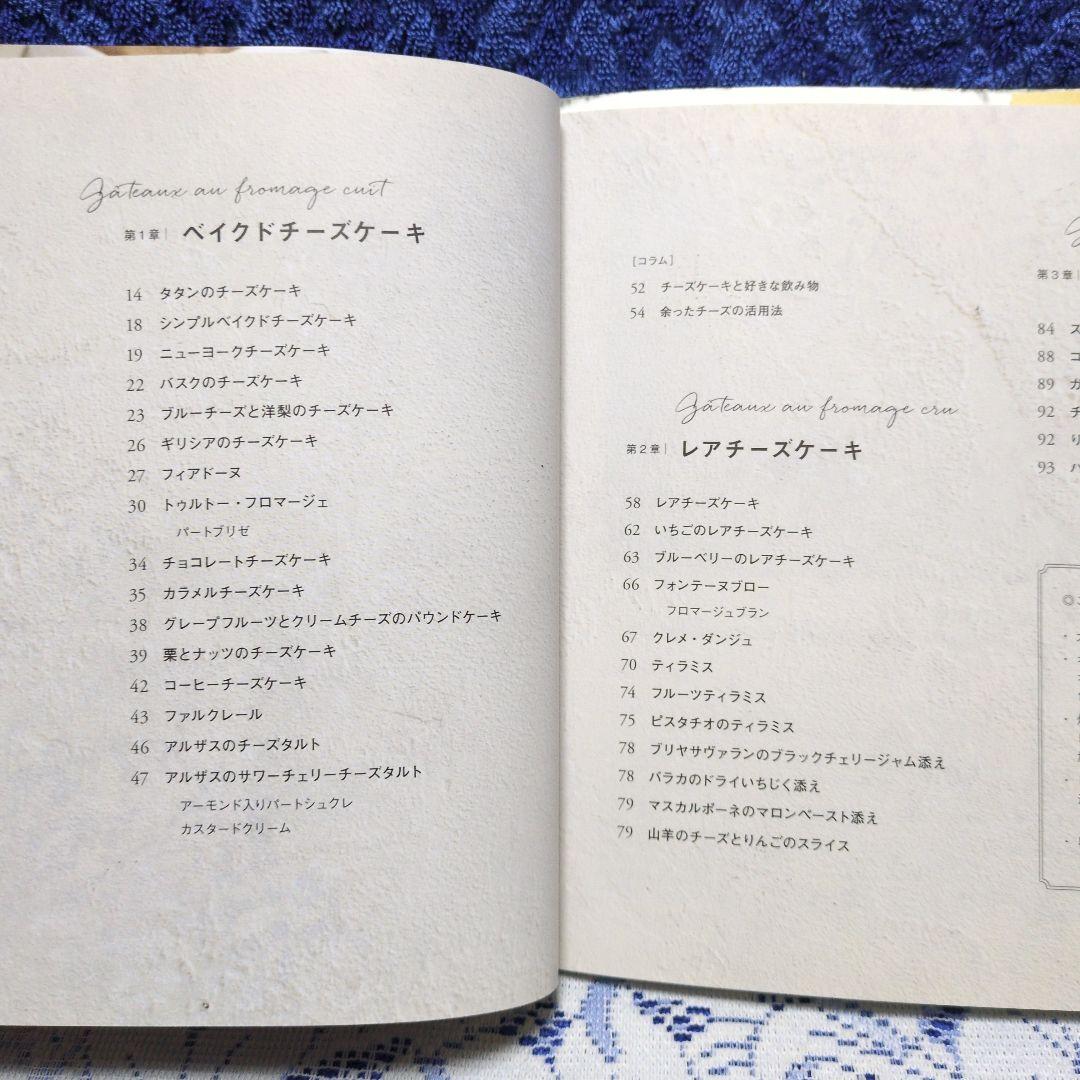 Gâteaux au fromage cuit
第1章| ベイクドチーズケーキ
14 タタンのチーズケーキ
18 シンプルベイクドチーズケーキ
19 ニューヨークチーズケーキ
22 バスクのチーズケーキ
23 ブルーチーズと洋梨のチーズケーキ
26 ギリシアのチーズケーキ
27 フィアドーヌ
30 トゥルトー・フロマージェ
パートブリゼ
34 チョコレートチーズケーキ
35 カラメルチーズケーキ
38 グレープフルーツとクリームチーズのパウンドケーキ
39 栗とナッツのチーズケーキ
42 コーヒーチーズケーキ
43 ファルクレール
46 アルザスのチーズタルト
47 アルザスのサワーチェリーチーズタルト
アーモンド入りパートシュクレ
カスタードクリーム
[コラム]
52 チーズケーキと好きな飲み物
54 余ったチーズの活用法
Gâteaux au fromage cru
第2章| レアチーズケーキ
58 レアチーズケーキ
62 いちごのレアチーズケーキ
63 ブルーベリーのレアチーズケーキ
66 フォンテーヌブロー
フロマージュブラン
67 クレメ・ダンジュ
70 ティラミス
74 フルーツティラミス
75 ピスタチオのティラミス
78 ブリヤサヴァランのブラックチェリージャム添え
78 バラカのドライいちじく添え
79 マスカルポーネのマロンペースト添え
79 山羊のチーズとりんごのスライス
第3章|
84
88
89
92
92
93